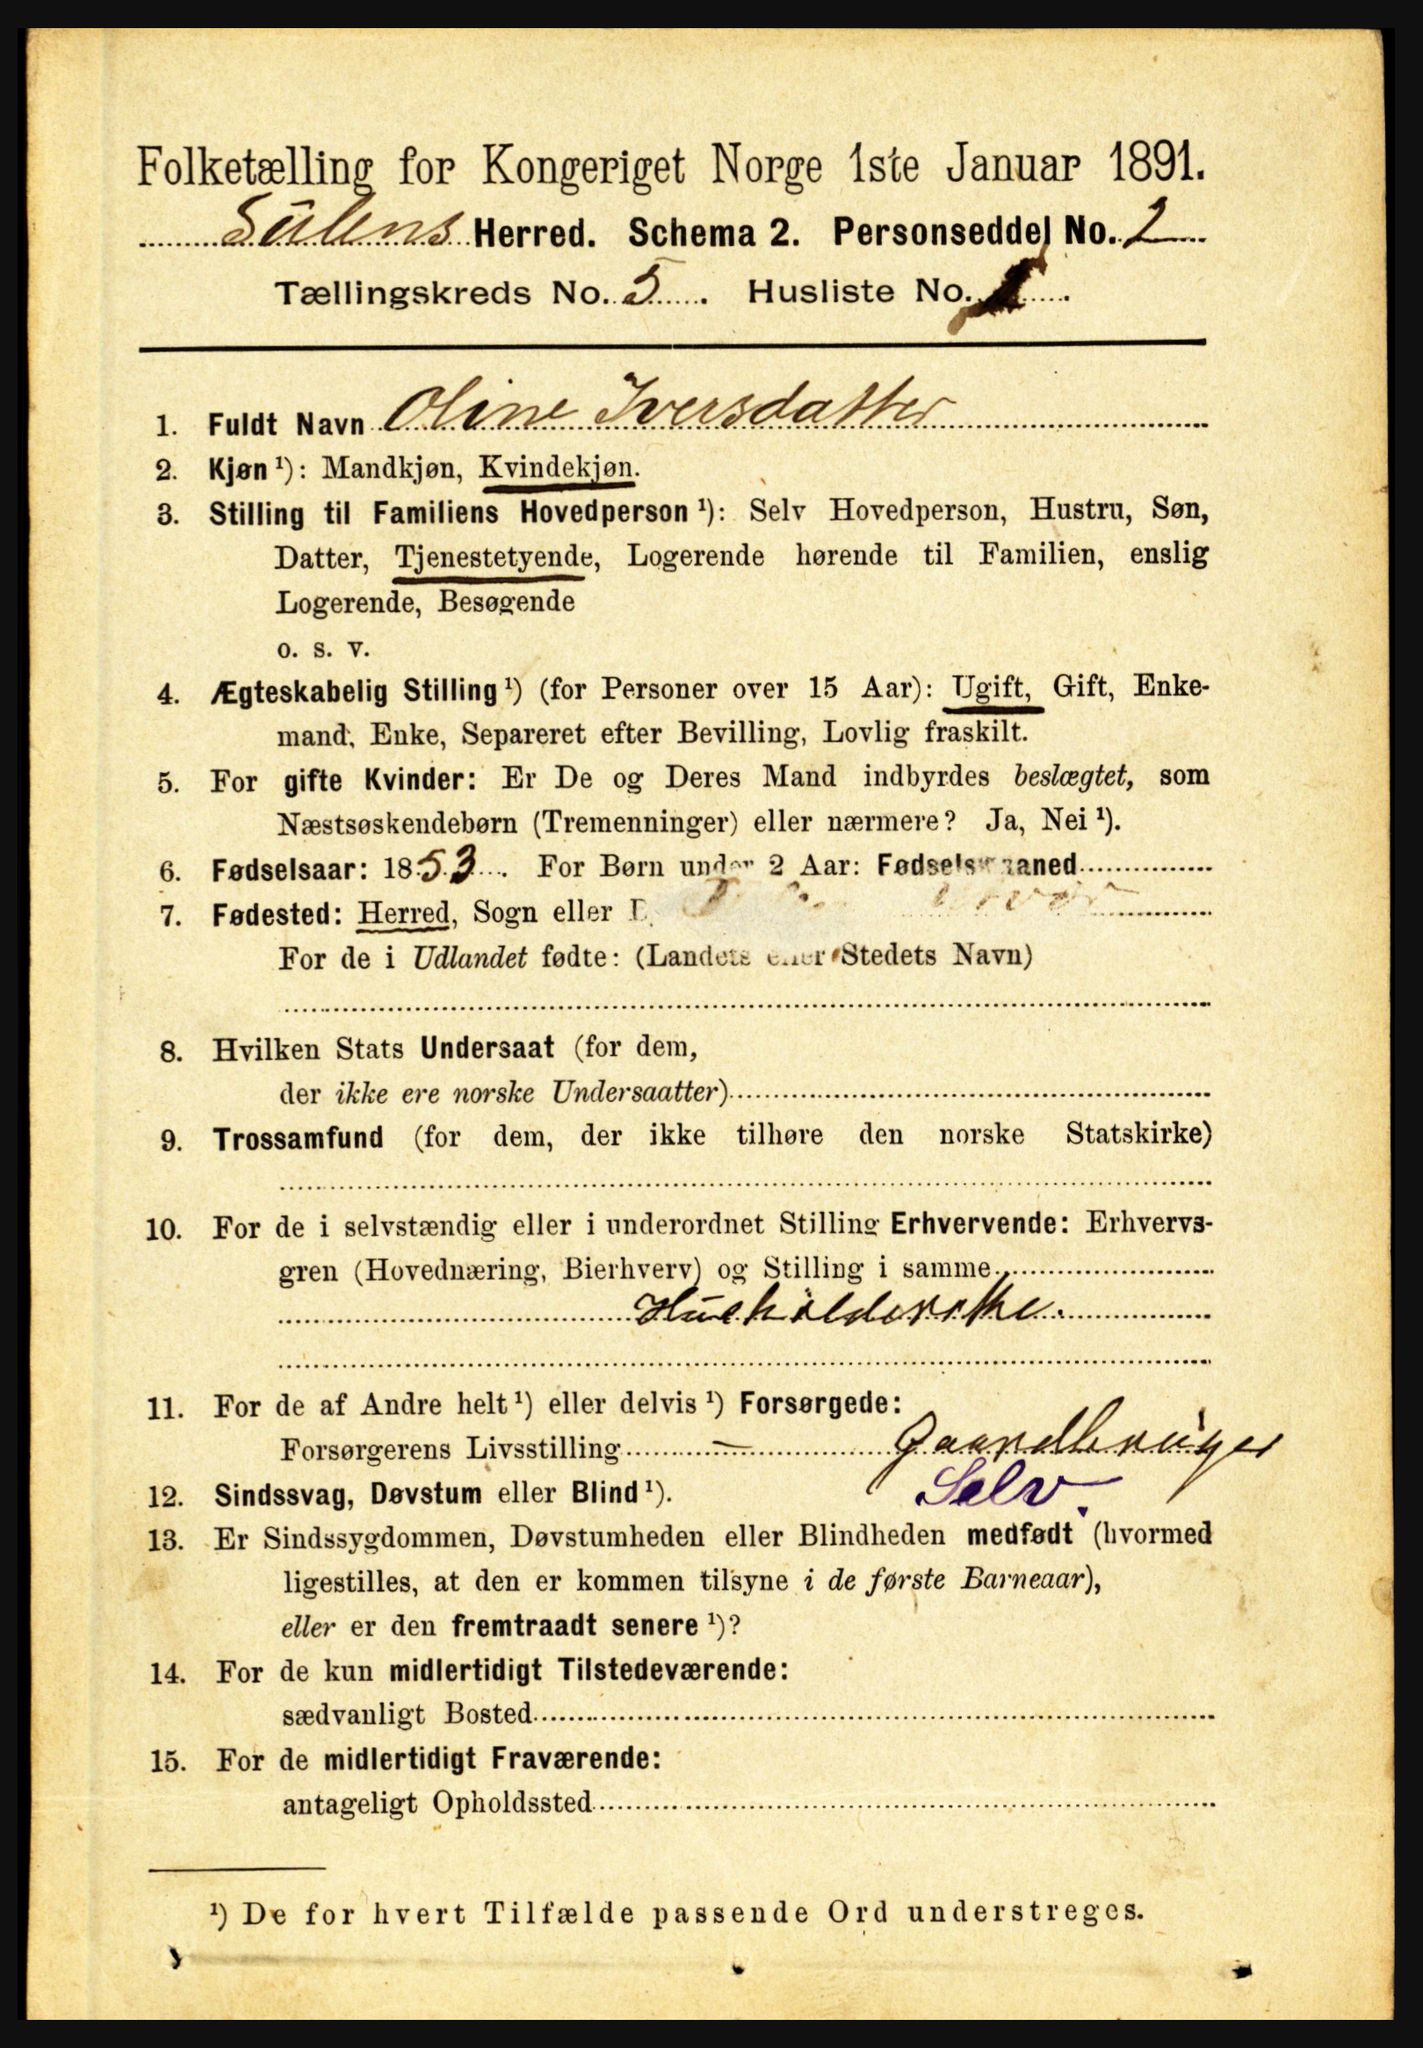 Folketælling for Kongeriget Norge 1ste Januar 1891.
Sulens Herred. Schema 2. Personseddel No. 2
Tællingskreds No. 5. Husliste No. 1.
1. Fuldt Navn Oline Iversdatter
2. Kjøn ¹): Mandkjøn, Kvindekjøn.
3. Stilling til Familiens Hovedperson ¹): Selv Hovedperson, Hustru, Søn,
Datter, Tjenestetyende, Logerende hørende til Familien, enslig
Logerende, Besøgende
o. s. v.
4. Ægteskabelig Stilling ¹) (for Personer over 15 Aar): Ugift, Gift, Enke-
mand, Enke, Separeret efter Bevilling, Lovlig fraskilt.
5. For gifte Kvinder: Er De og Deres Mand indbyrdes beslægtet, som
Næstsøskendebørn (Tremenninger) eller nærmere? Ja, Nei ¹).
6. Fødselsaar: 1853. For Børn under 2 Aar: Fødselsmaaned
7. Fødested: Herred, Sogn eller
For de i Udlandet fødte: (Landets eller Stedets Navn)
8. Hvilken Stats Undersaat (for dem,
der ikke ere norske Undersaatter)
9. Trossamfund (for dem, der ikke tilhøre den norske Statskirke)
10. For de i selvstændig eller i underordnet Stilling Erhvervende: Erhvervs-
gren (Hovednæring, Bierhverv) og Stilling i samme
Husholderske.
11. For de af Andre helt ¹) eller delvis ¹) Forsørgede:
Forsørgerens Livsstilling — Gaardbruger
12. Sindssvag, Døvstum eller Blind ¹). Selv.
13. Er Sindssygdommen, Døvstumheden eller Blindheden medfødt (hvormed
ligestilles, at den er kommen tilsyne i de første Barneaar),
eller er den fremtraadt senere ¹)?
14. For de kun midlertidigt Tilstedeværende:
sædvanligt Bosted
15. For de midlertidigt Fraværende:
antageligt Opholdssted
¹) De for hvert Tilfælde passende Ord understreges.